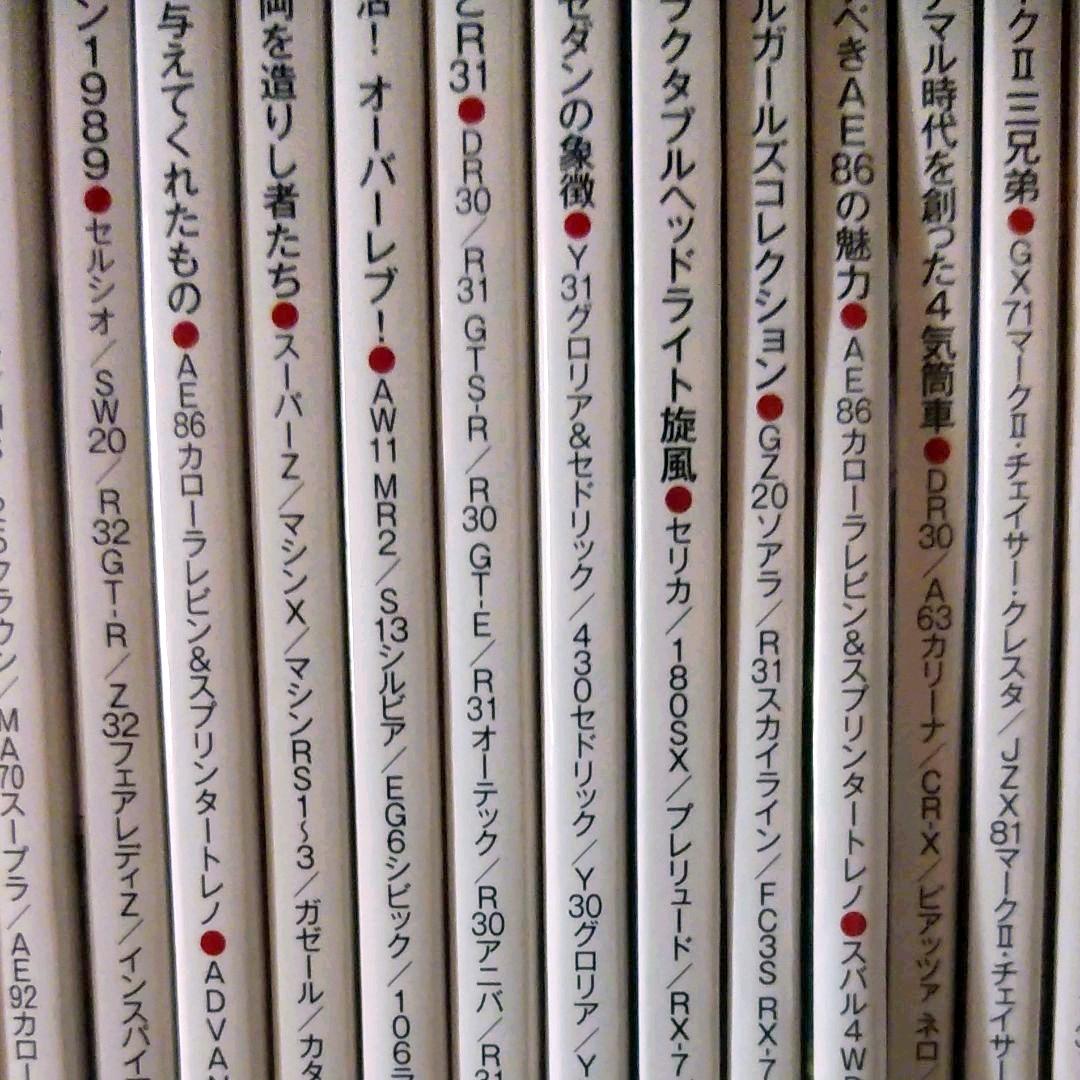 クⅡ三兄弟●GX71マークⅡ・チェイサー・クレスタ／JZX81マークⅡ・チェイサー
マル時代を創った4気筒車●DR30／A63カリーナ／CR-X／ピアッツァ ネロ／
べきAE86の魅力●AE86カローラレビン&スプリンタートレノ●スバル4W
ルガールズコレクション●GZ20ソアラ／R31スカイライン／FC3S RX-7
ラクタブルヘッドライト旋風●セリカ／180SX／プレリュード／RX-7
セダンの象徴●Y31グロリア&セドリック／430セドリック／Y30グロリア／Y
R31●DR30／R31 GTS-R／R30 GT-E／R31オーテック／R30アニバ／R31
活！オーバーレブ！●AW11 MR2／S13シルビア／EG6シビック／106ラ
を造りし者たち●スーパーZ／マシンX／マシンRS1〜3／ガゼール／カタ
与えてくれたもの●AE86カローラレビン&スプリンタートレノ●ADVAN
ン1989●セルシオ／SW20／R32GT-R／Z32フェアレディZ／インスパイア
クラウン／MA70スープラ／AE92カロー